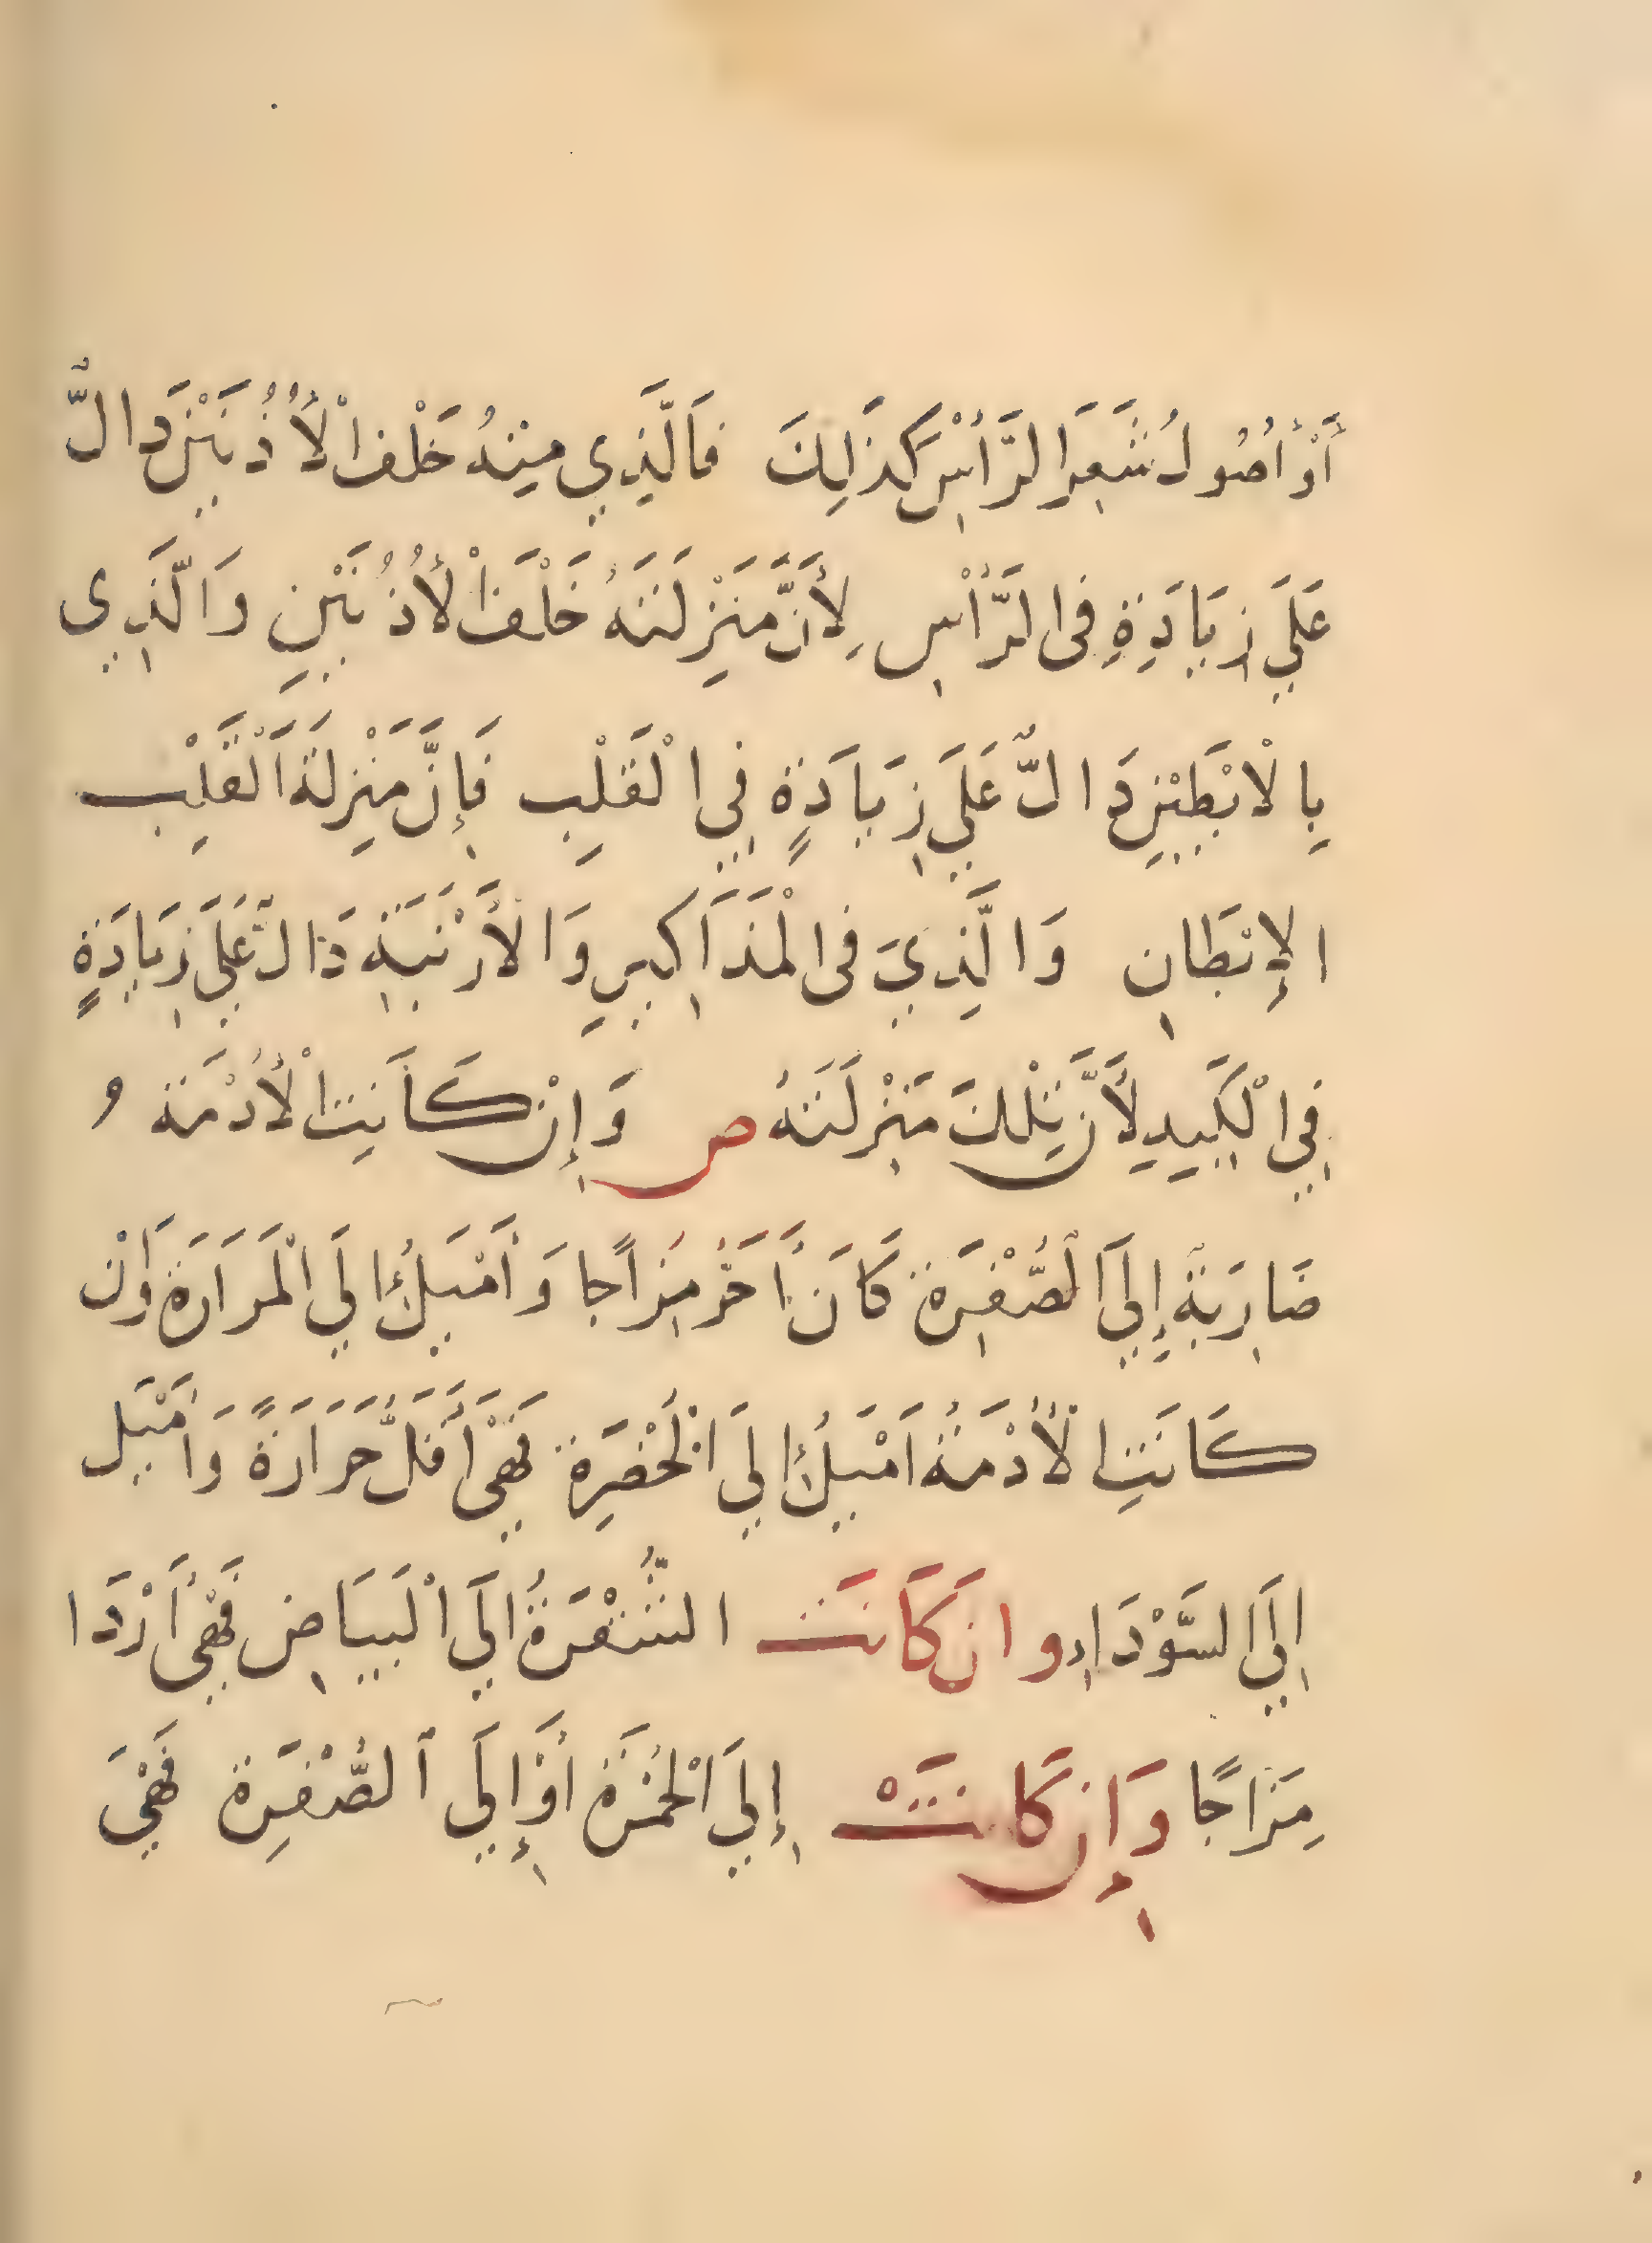 أَوْ أُصُولُ شَعَرِ الرَّأْسِ كَذَلِكَ فَالَّذِي مِنْهُ خَلْفَ الْأُذُنَيْنِ دَالٌّ
عَلَي زِيَادَةٍ فِي الرَّأْسِ لِأَنَّ مَنْزِلَتَهُ خَلْفَ الْأُذُنَيْنِ وَالَّذِي
بِالْابْطَيْنِ دَالٌّ عَلَي زِيَادَةٍ فِي الْقَلْبِ فَإِنَّ مَنْزِلَةَ الْقَلْبِ
الإِبَطَانِ وَالَّذِي فِي الْمَذَاكِيرِ وَالْأَرْنَبَةِ دَالٌّ عَلَي زِيَادَةٍ
فِي الْكَبِدِ لِأَنَّ تِلْكَ مَنْزِلَتَهُ ص وَإِنْ كَانَتِ الْأُدْمَةُ
ضَارِبَةً إِلَي الصُّفْرَةِ كَانَ أَحَرُّ مِزَاجًا وَأَمْيَلُ إِلَي الْمَرَارَةِ وَإِنْ
كَانَتِ الْأُدْمَةُ اَمْيَلُ إِلَي الْخُضْرَةِ فَهْيَ أَقَلُّ حَرَارَةً وَاَمْيَل
اِلَي السَّوْدَاءِ وان كَانَت الشُّقْرَةُ اِلَي الْبَيَاضِ فَهْيَ أَرْدَا
مِزَاجًا وَإِن كَانَتْ إِلَي الْحُمْرَةِ أَوْ إِلَي الصُّفْرَةِ فَهْيَ